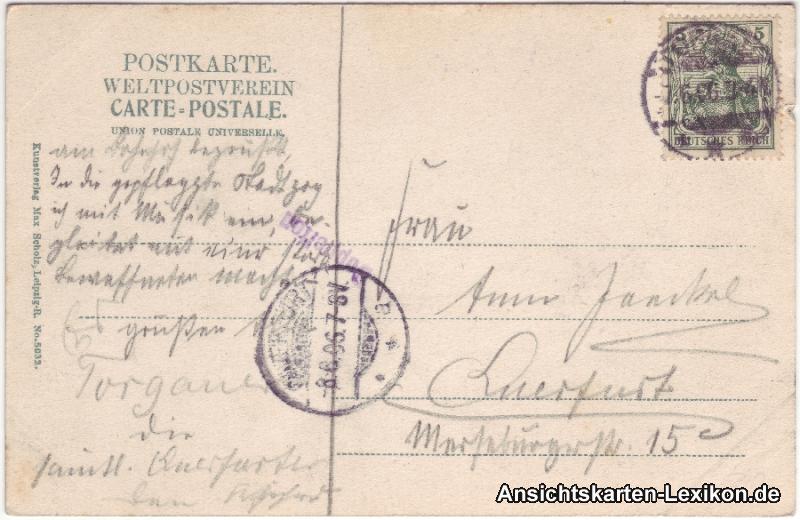 POSTKARTE.
WELTPOSTVEREIN
CARTE=POSTALE.
UNION POSTALE UNIVERSELLE.
5
DEUTSCHES REICH
Kunstverlag Max Scholz, Leipzig-R. No.5032.
am Bahnhof begrüßt,
In die geflaggte Stadt zog
ich mit Musik ein, be-
gleitet mit einer
bewaffneten Macht
grüßen
Torgauer
die
sämtl. Querfurter
Frau
Anna Jaeckel
Querfurt
Merseburgerstr. 15
QUERFURT
8.6.06.7-8V.
Ansichtskarten-Lexikon.de